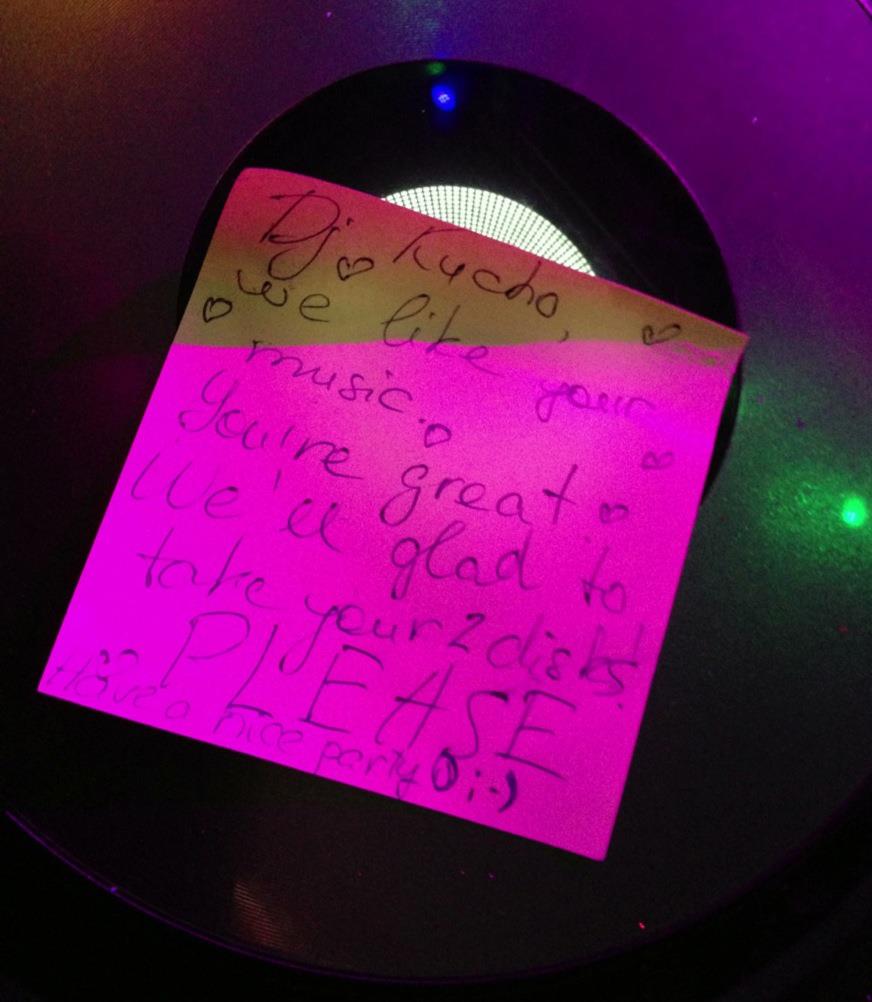 Dj Kucho,
♡ we ♡ like your ♡
music. ♡
You're great ♡ ♡
We'll glad to
take your 2 disks!
PLEASE
Have a nice party ;-)